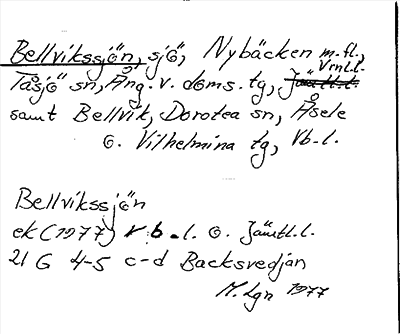 Bellvikssjön, sjö, Nybäcken m.fl.,
Vrnl.l.
Tåsjö sn, Ång. v. doms. tg, Jämtl.l.
samt Bellvik, Dorotea sn, Åsele
o. Vilhelmina tg, Vb.l.
Bellvikssjön
ek (1977) Vb.l. o. Jämtl.l.
21 G 4-5 c-d Backsvedjan
M.Lgn 1977